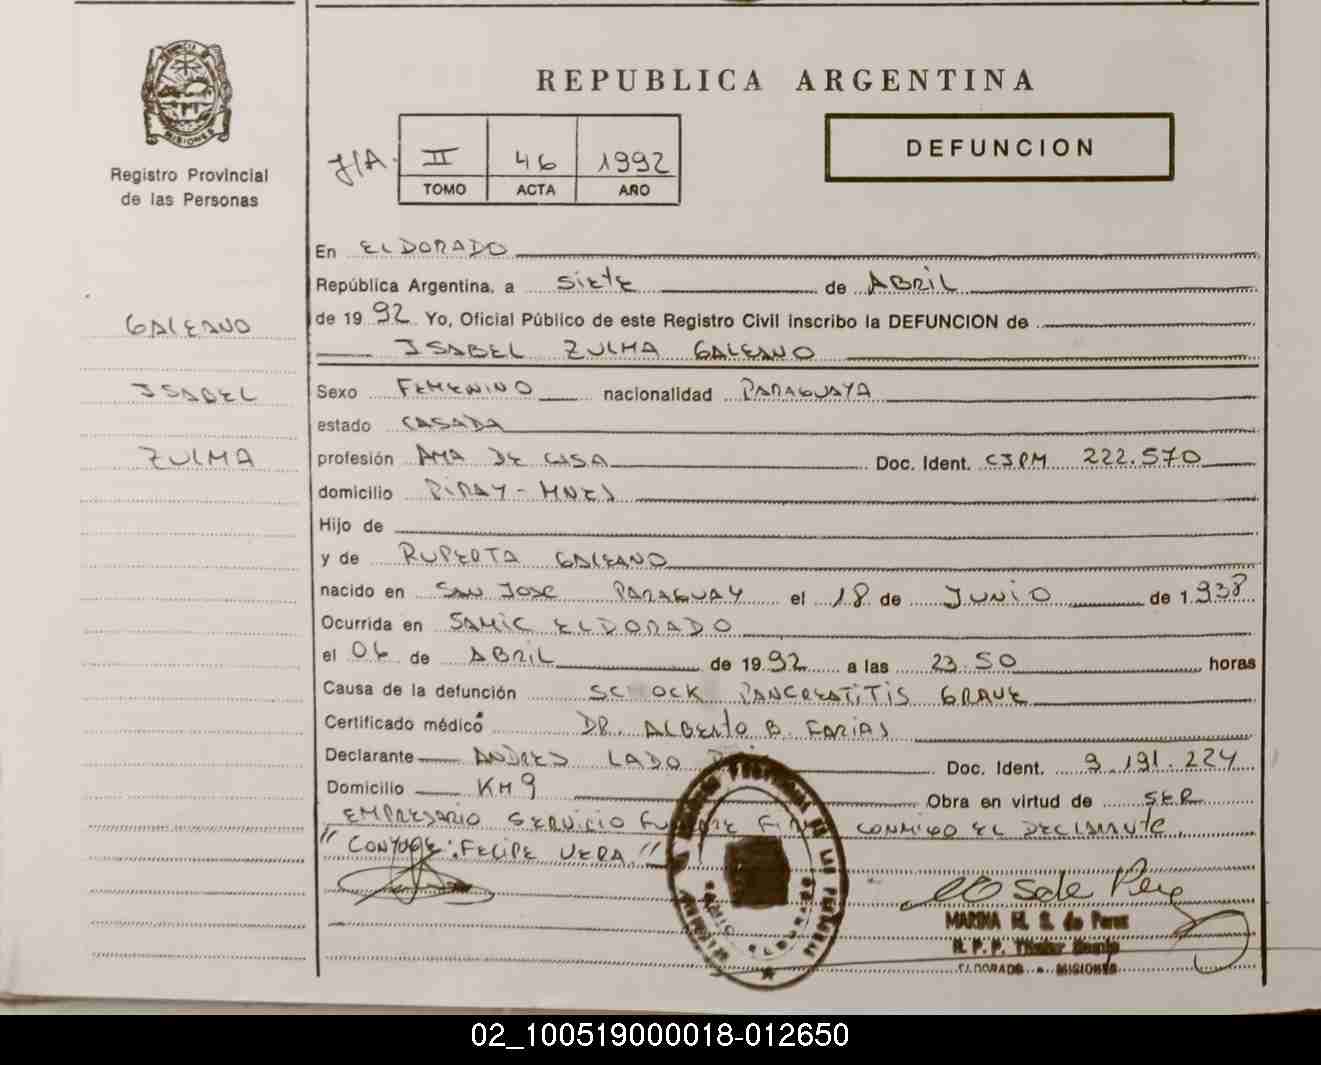 REPUBLICA ARGENTINA
MISIONES
Registro Provincial
de las Personas
J/A.
II 46 1992
TOMO ACTA AÑO
DEFUNCION
GALEANO
ISABEL
ZULMA
En ELDORADO
República Argentina, a SIETE de ABRIL
de 19 92 Yo, Oficial Público de este Registro Civil inscribo la DEFUNCION de
ISABEL ZULMA GALEANO
Sexo FEMENINO nacionalidad PARAGUAYA
estado CASADA
profesión AMA DE CASA Doc. Ident. CIPM 222.570
domicilio PIRAY - MNES
Hijo de
y de RUPERTA GALEANO
nacido en SAN JOSE PARAGUAY el 18 de JUNIO de 1.938
Ocurrida en SAMIC ELDORADO
el 06 de ABRIL de 19 92 a las 23 50 horas
Causa de la defunción SCHOCK PANCREATITIS GRAVE
Certificado médico DR. ALBERTO B. FARIAS
Declarante ANDRES LADO Doc. Ident. 9.191.224
Domicilio KM 9 Obra en virtud de SER
EMPRESARIO SERVICIO CONMIGO EL DECLARANTE.
"CONYUGE: FELIPE VERA."
MARINA M. S. de Perez
R. P. P. Titular
ELDORADO - MISIONES
02_100519000018-012650